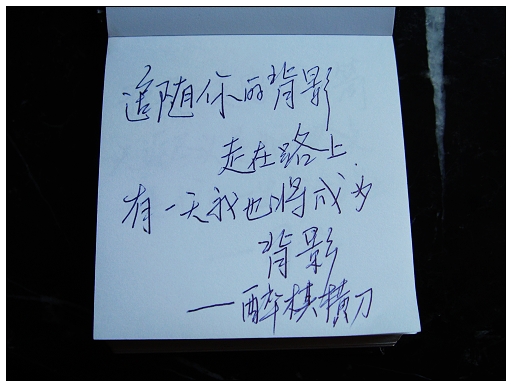 追随你的背影
走在路上
有一天我也将成为
背影
——醉棋横刀